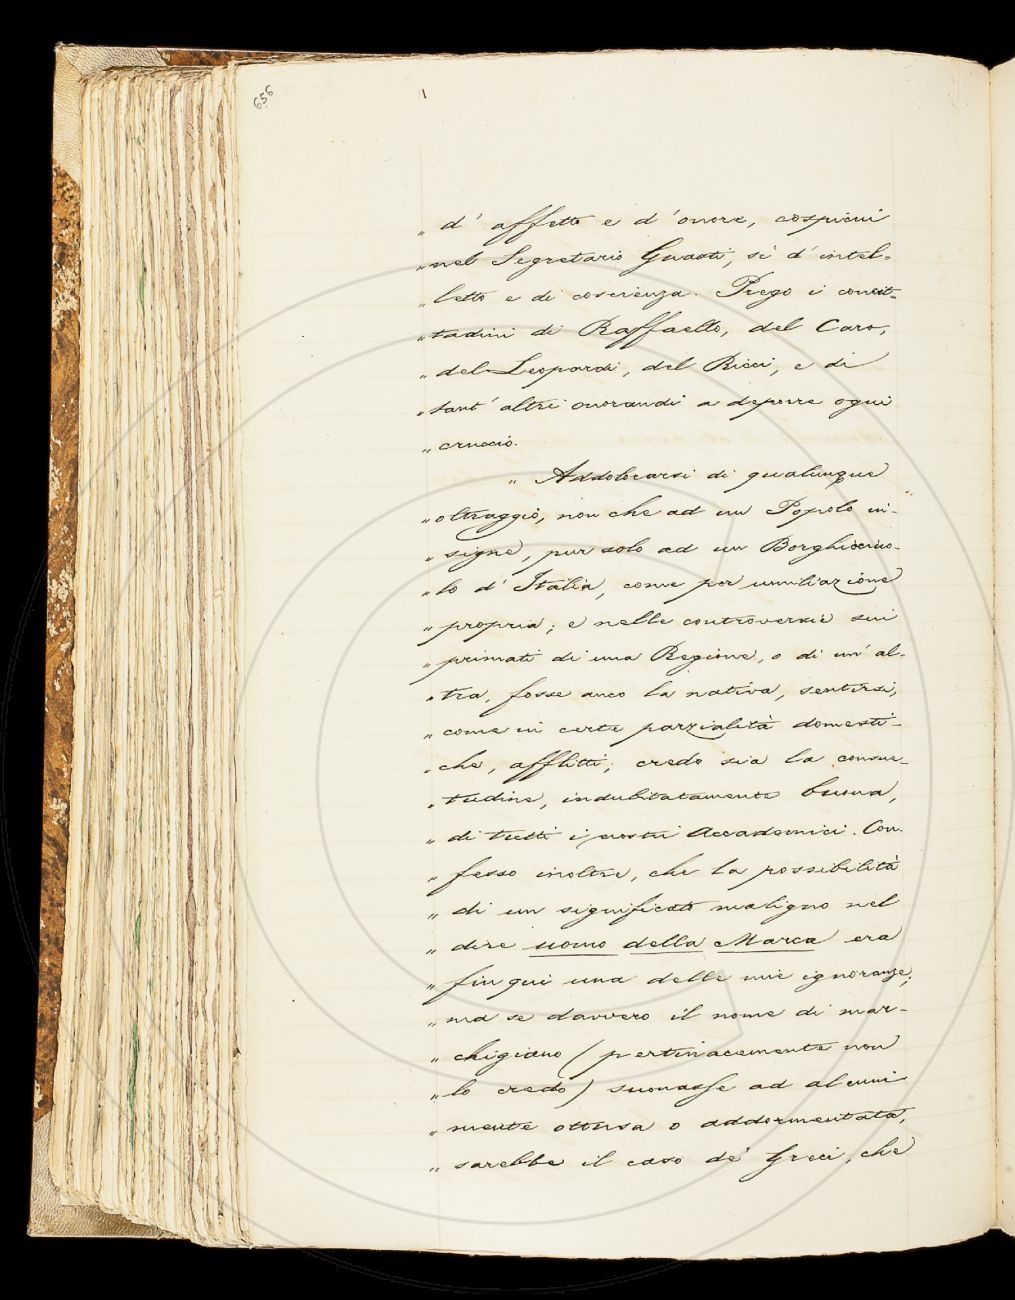 656
„ d' affetto e d' onore, cospicui
„ nel Segretario Guasti, sì d' intel=
„ letto e di coscienza. Prego i concit-
„ tadini di Raffaello, del Caro,
„ del Leopardi, del Ricci, e di
„ tant' altri onorandi a deporre ogni
„ cruccio.
„ Addolorarsi di qualunque
„ oltraggio, non che ad un Popolo in-
„ signe, pur solo ad un Borghicciuo-
„ lo d' Italia, come per umiliazione
„ propria; e nelle controversie sui
„ primati di una Regione, o di un' al-
„ tra, fosse anco la nativa, sentirsi,
„ come in certe parzialità domesti-
„ che, afflitti; credo sia la consue-
„ tudine, indubitatamente buona,
„ di tutti i nostri Accademici. Con-
„ fesso inoltre, che la possibilità
„ di un significato maligno nel
„ dire uomo della Marca era
„ fin qui una delle mie ignoranze;
„ ma se davvero il nome di mar-
„ chigiano (pertinacemente non
„ lo credo) suonasse ad alcuni
„ mente ottusa o addormentata,
„ sarebbe il caso de' Greci, che